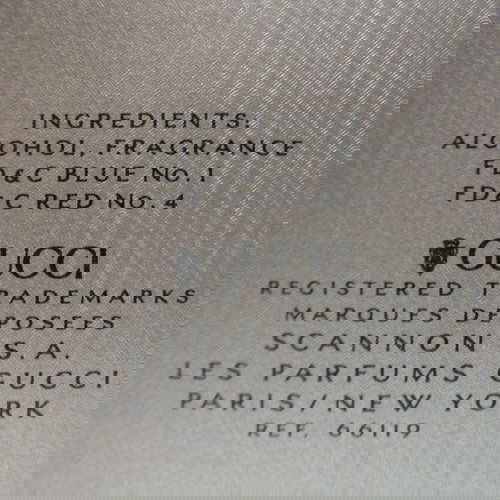 INGREDIENTS:
ALCOHOL, FRAGRANCE
FD&C BLUE No. 1
FD&C RED No. 4
GUCCI
REGISTERED TRADEMARKS
MARQUES DEPOSEES
SCANNON S.A.
LES PARFUMS GUCCI
PARIS/NEW YORK
REF. 66119